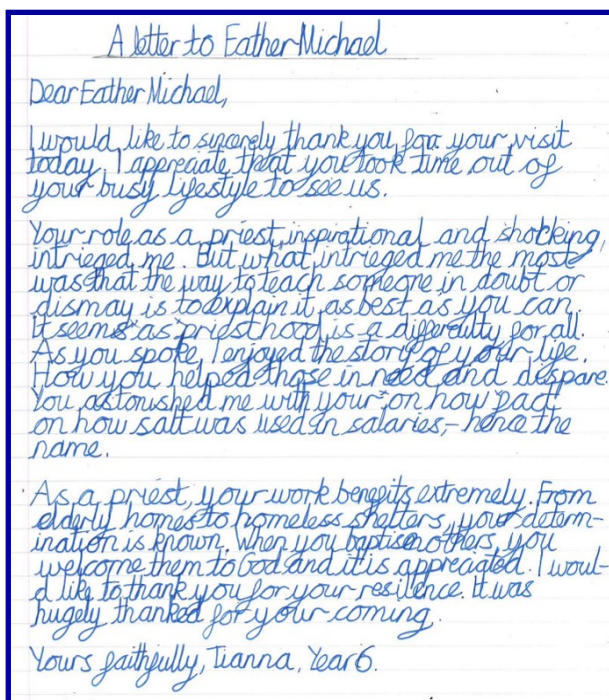 A letter to Father Michael
Dear Father Michael,
I would like to sincerely thank you for your visit
today. I appreciate that you took time out of
your busy lifestyle to see us.
Your role as a priest, inspirational and shocking,
intrieged me. But what intrieged me the most
was that the way to teach someone in doubt or
dismay is to explain it as best as you can.
It seems as priesthood is a differculty for all.
As you spoke, I enjoyed the story of your life.
How you helped those in need and despare.
You astonished me with your on how fact
on how salt was used in salaries, - hence the
name.
As a priest, your work benefits extremely. From
elderly homes to homeless shelters, your determ-
ination is known. When you baptise others, you
welcome them to God and it is appreciated. I woul-
d like to thank you for your resilence. It was
hugely thanked for your coming.
Yours faithfully, Tianna, Year 6.